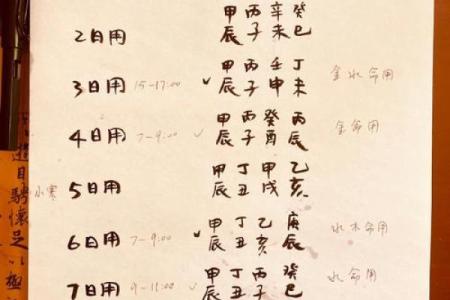 甲丙辛癸
2日用 辰子未巳
甲丙壬丁
3日用 15-17:00 ✓ 辰子申未 金水命用
甲丙癸丙
4日用 7-9:00 ✓ 辰子酉辰 金命用
甲丁甲乙
水寒 5日用 辰丑戌亥
甲丁乙庚
6日用 7-9:00 ✓ 辰丑亥辰 水木命用
甲丁丙癸
7日用 9-11:00 ✓ 辰丑子巳 水命用
遊目騁懷足以極